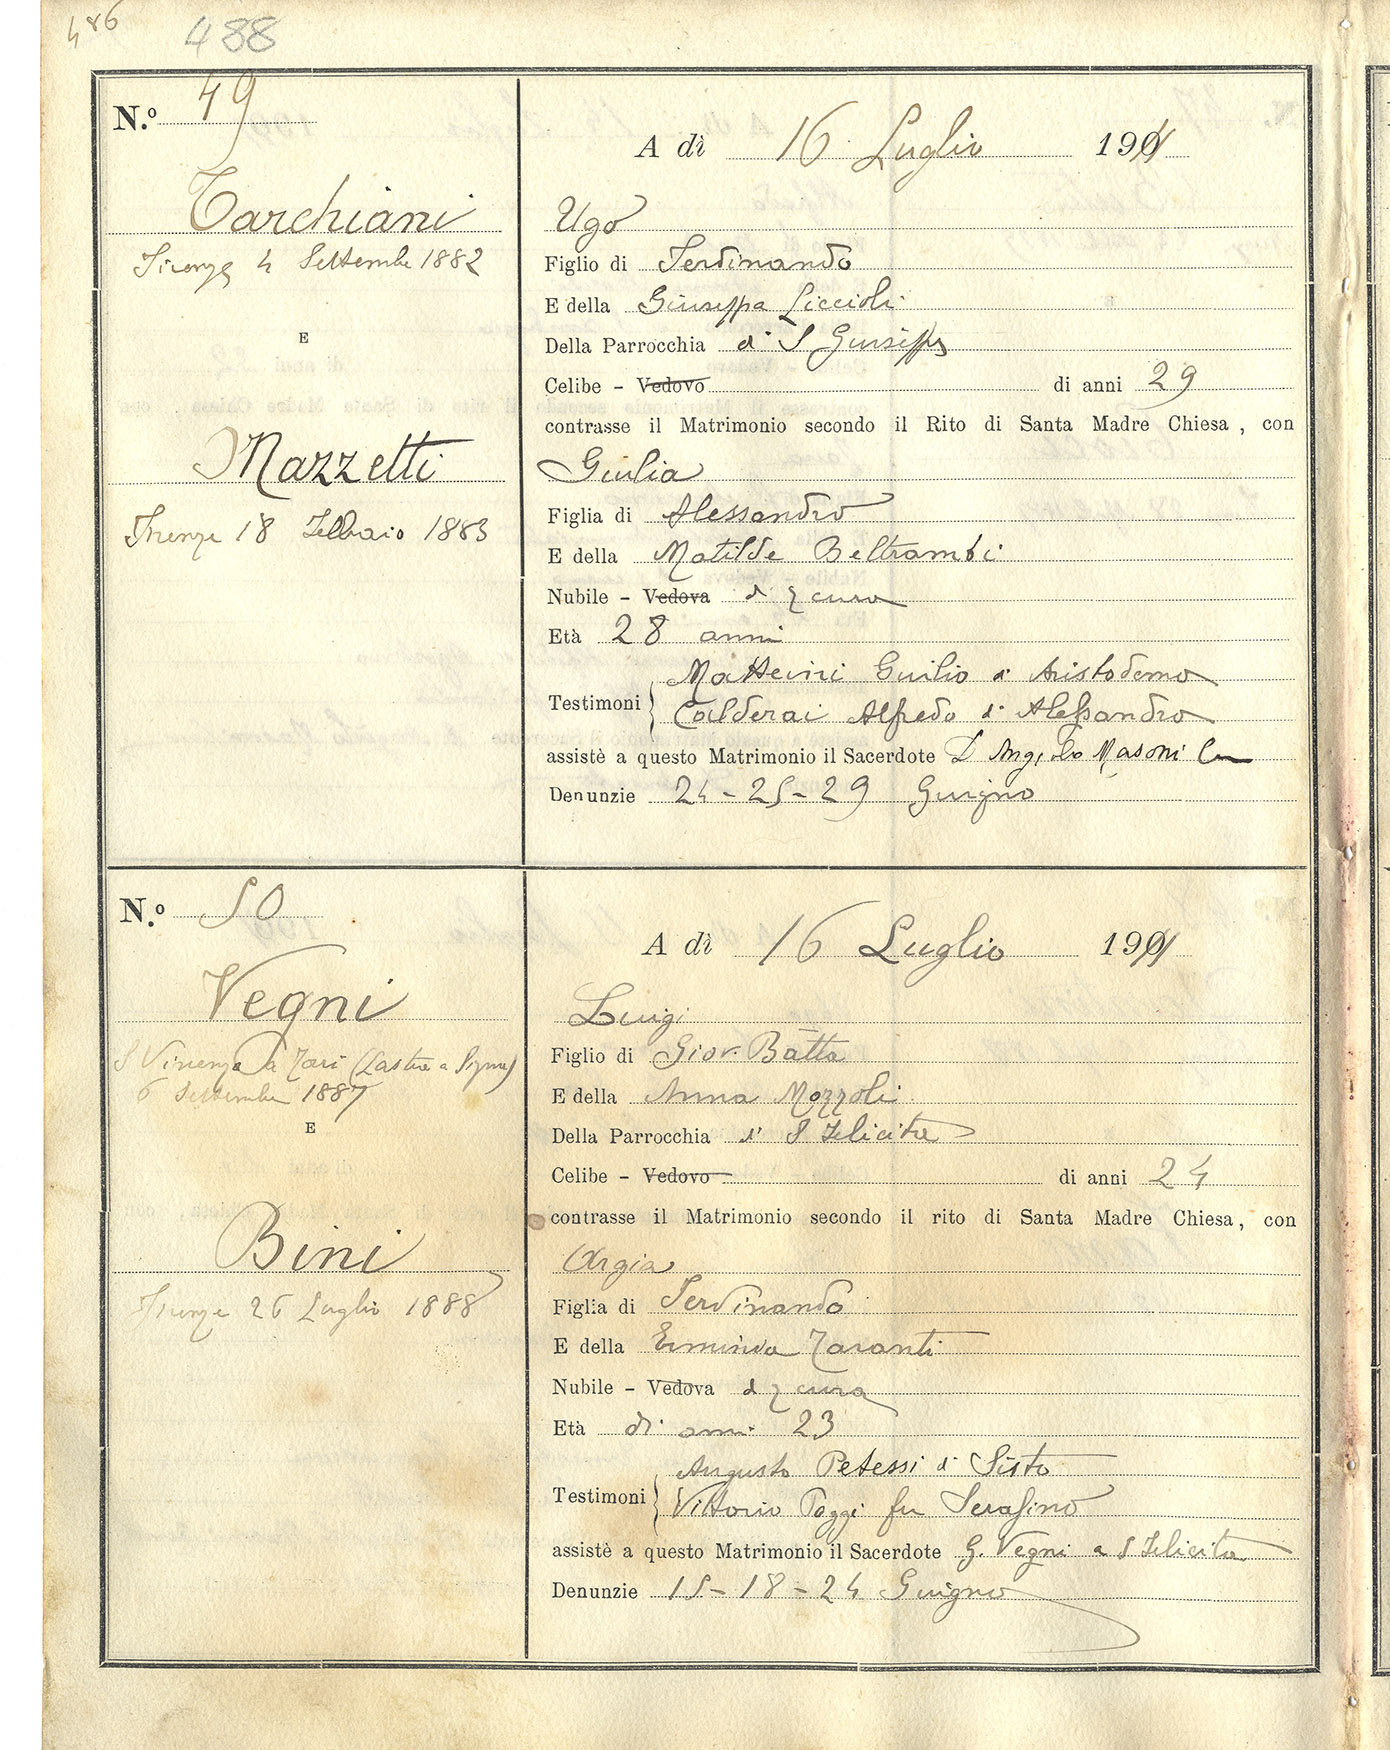 486 488
N.o 49
A dì 16 Luglio 1911
Tarchiani
Firenze 4 Settembre 1882
E
Mazzetti
Firenze 18 Febbraio 1883
Ugo
Figlio di Ferdinando
E della Giuseppa Liccioli
Della Parrocchia di S Giuseppe
Celibe - Vedovo di anni 29
contrasse il Matrimonio secondo il Rito di Santa Madre Chiesa, con
Giulia
Figlia di Alessandro
E della Matilde Beltrambi
Nubile - Vedova di q cura
Età 28 anni
Testimoni Matteini Giulio di Aristodemo
Calderai Alfredo di Alessandro
assistè a questo Matrimonio il Sacerdote D Angelo Masoni
Denunzie 24-25-29 Giugno
N.o 50
A dì 16 Luglio 1911
Vegni
S Vincenzo a Torri (Lastra a Signa)
6 Settembre 1887
E
Bini
Firenze 26 Luglio 1888
Luigi
Figlio di Giov. Batta
E della Anna Mozzoli
Della Parrocchia di S Felicita
Celibe - Vedovo di anni 24
contrasse il Matrimonio secondo il rito di Santa Madre Chiesa, con
Argia
Figlia di Ferdinando
E della Erminia Taranti
Nubile - Vedova di q cura
Età di anni 23
Testimoni Augusto Petessi di Sisto
Vittorio Poggi fu Serafino
assistè a questo Matrimonio il Sacerdote G. Vegni a S Felicita
Denunzie 15-18-24 Giugno